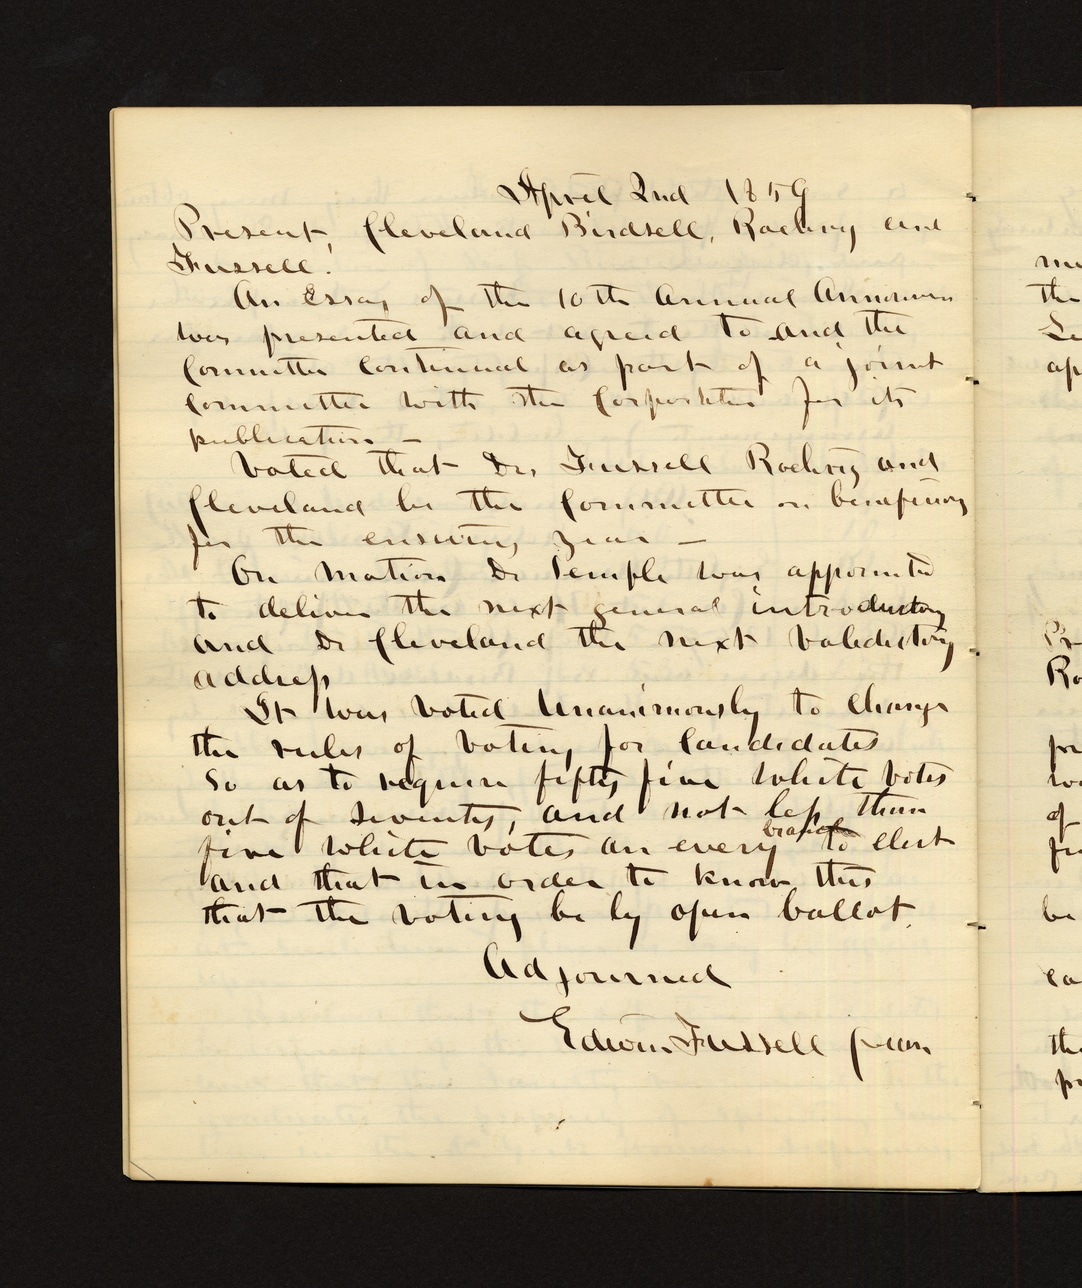 April 2nd 1859
Present, Cleveland Birdsell, Roehrig and
Fussell.
An Essay of the 10th Annual Announcmn
was presented and agreed to and the
Committee Continued as part of a joint
Committee with the Corporators for its
publication —
Voted that Drs Fussell Roehrig and
Cleveland be the Committee on beneficiary
for the ensuing year —
On Motion Dr Temple was appointed
to deliver the next general introductory
and Dr Cleveland the next Valedictory
address
It was Voted Unanimously to change
the rules of Voting for Candidates
So as to require fifty five white Votes
out of Seventy, and not less than
five white Votes on every branch to elect
and that in order to know this
that the Voting be by open ballot.
Adjourned
Edwin Fussell Dean
me
the
ap
Ro
of
be
the